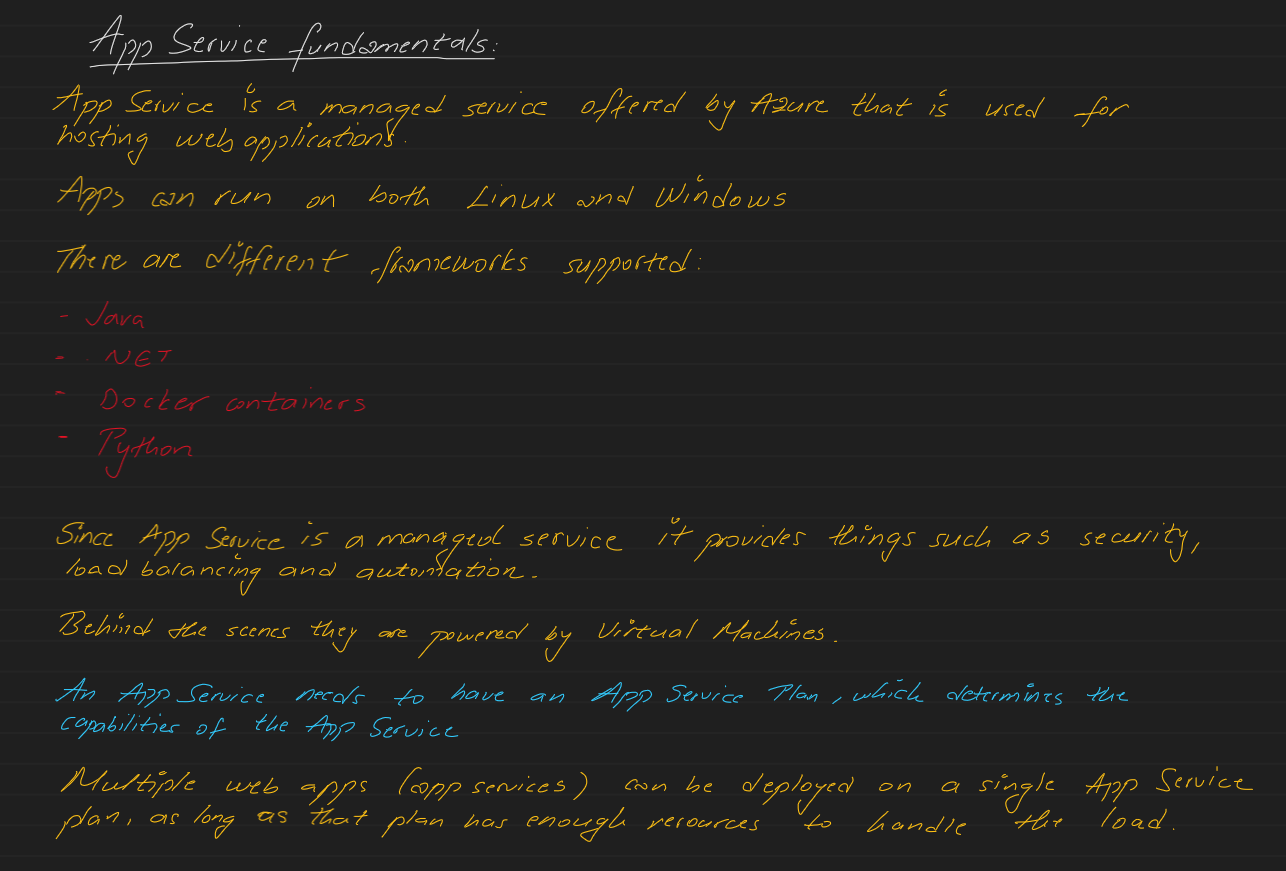 App Service fundamentals:
App Service is a managed service offered by Azure that is used for
hosting web applications.
Apps can run on both Linux and Windows
There are different frameworks supported:
- Java
- .NET
- Docker containers
- Python
Since App Service is a managed service it provides things such as security,
load balancing and automation.
Behind the scenes they are powered by Virtual Machines.
An App Service needs to have an App Service Plan, which determines the
capabilities of the App Service
Multiple web apps (app services) can be deployed on a single App Service
plan, as long as that plan has enough resources to handle the load.